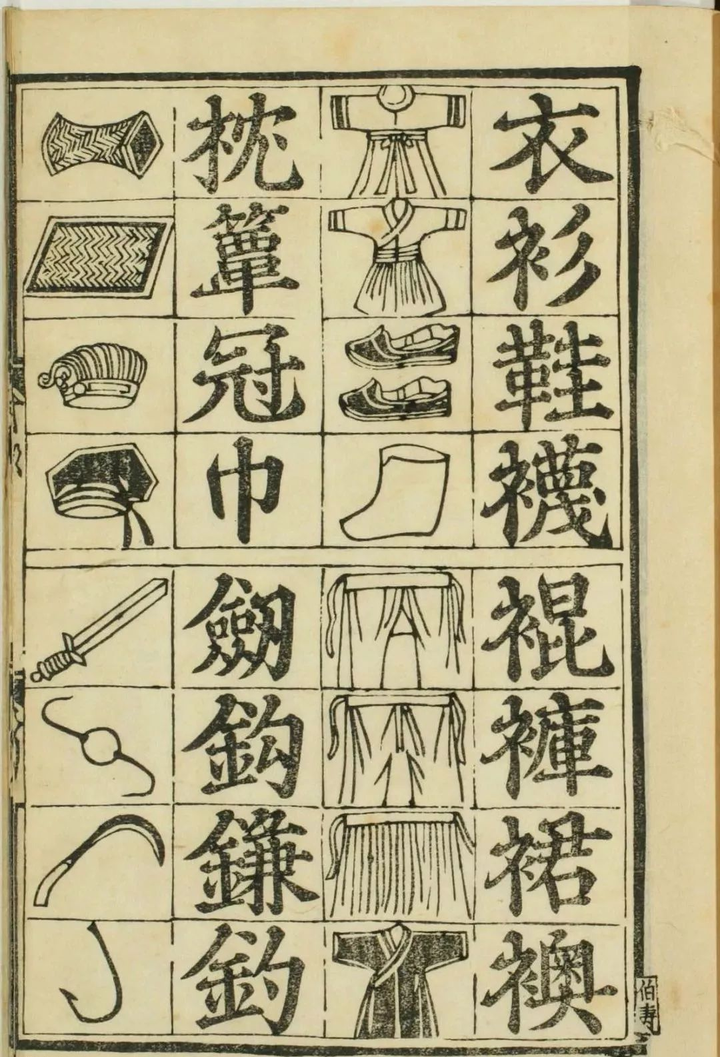 衣
衫
鞋
襪
裩
褲
裙
襖
枕
簟
冠
巾
劒
鈎
鎌
釣
伯壽